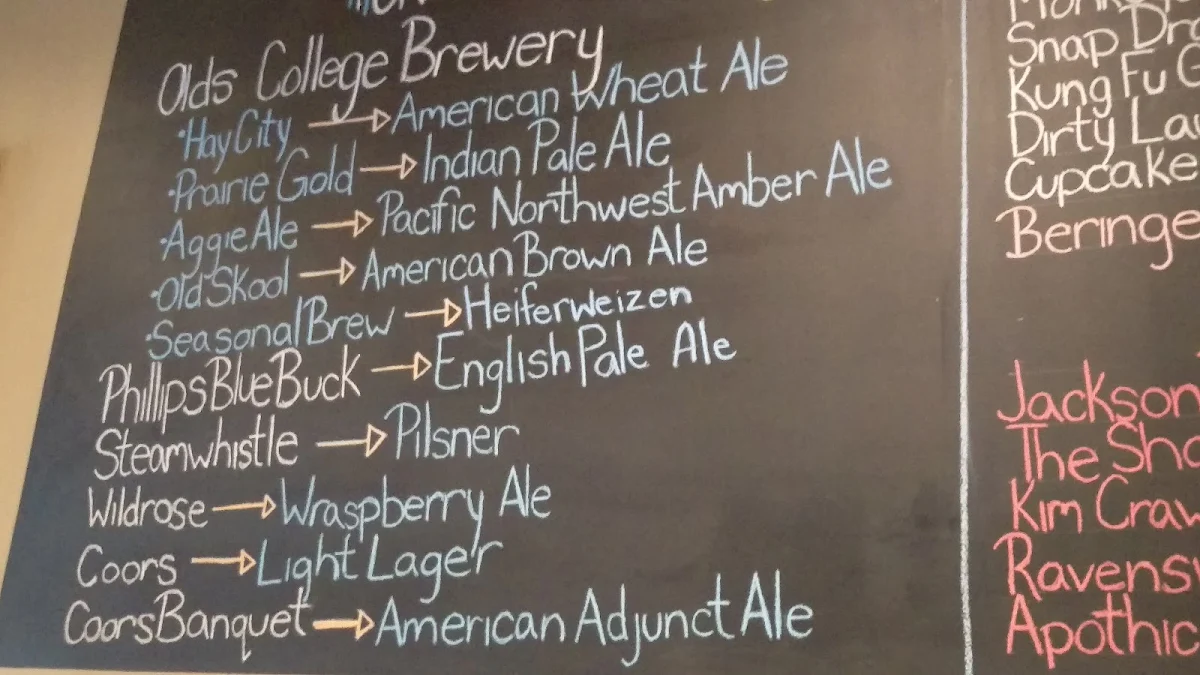 Olds College Brewery
·Hay City → American Wheat Ale
·Prairie Gold → Indian Pale Ale
·Aggie Ale → Pacific Northwest Amber Ale
·Old Skool → American Brown Ale
·Seasonal Brew → Heiferweizen
Phillips Blue Buck → English Pale Ale
Steamwhistle → Pilsner
Wildrose → Wraspberry Ale
Coors → Light Lager
Coors Banquet → American Adjunct Ale
Snap
Kung Fu
Dirty
Cupcake
Jackson
The
Kim
Apothic